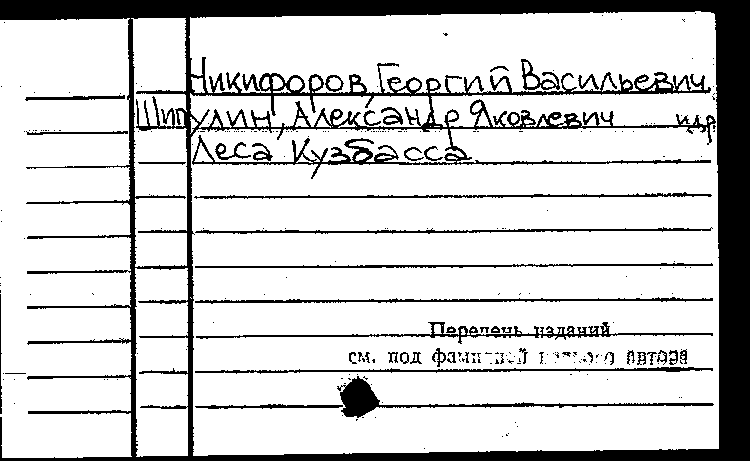 Никифоров, Георгий Васильевич,
Шипулин, Александр Яковлевич и др
Леса Кузбасса
Перечень изданий
см. под фамилией автора